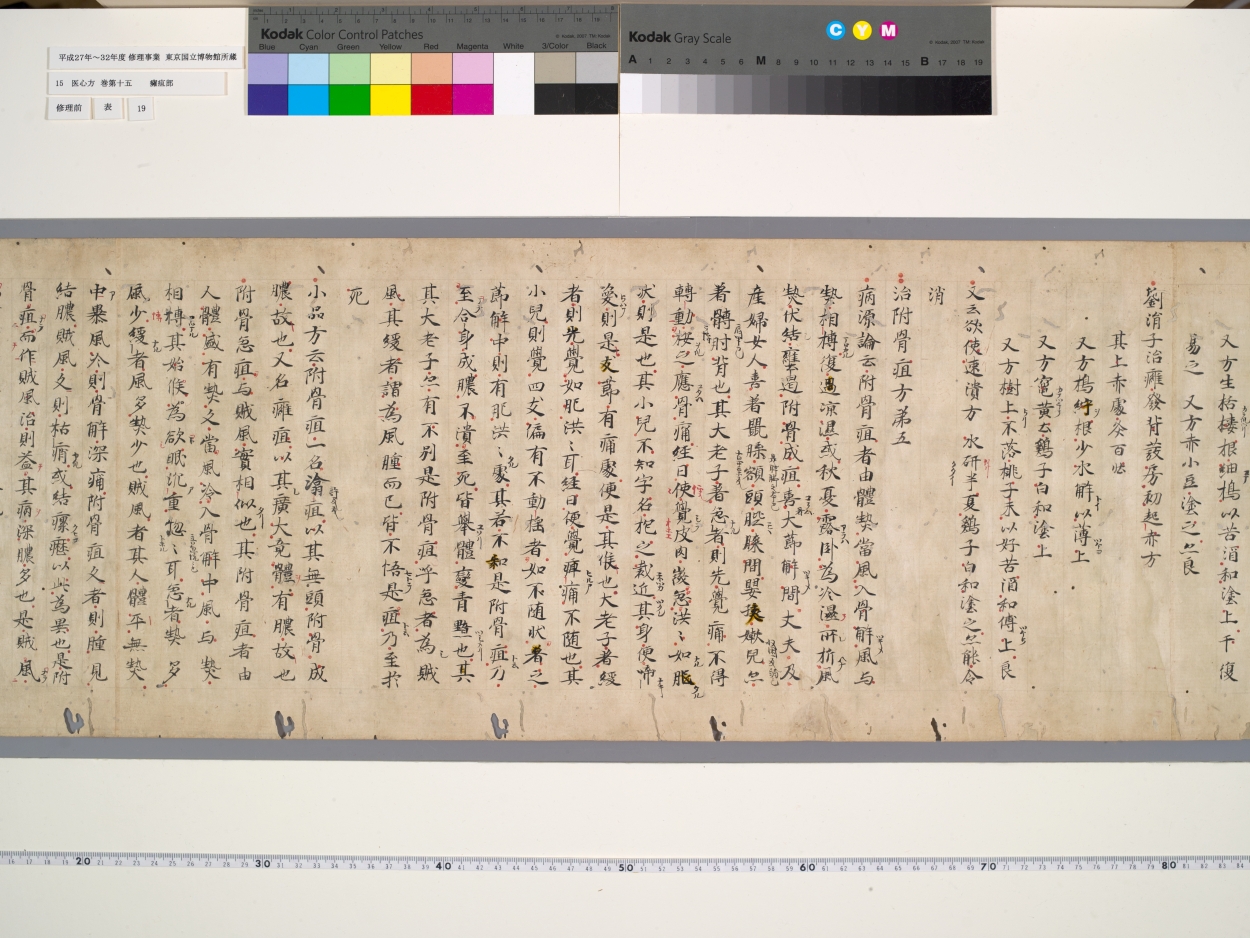 Kodak Color Control Patches
Blue Cyan Green Yellow Red Magenta White 3/Color Black
Kodak Gray Scale
C Y M
A 1 2 3 4 5 6 M 8 9 10 11 12 13 14 15 B 17 18 19
平成27年～32年度 修理事業 東京国立博物館所蔵
15 医心方 巻第十五 癰疽部
修理前 表 19
又方生栝樓根細搗以苦酒和塗上干復
易之 又方赤小豆塗之亦良
劉涓子治癰發背發房初起赤方
其上赤處灸百壯
又方搗苧根少水解以薄上
又方竈黄土鷄子白和塗上
又方樹上不落桃子末以好苦酒和傅上良
又云欲使速潰方 水研半夏鷄子白和塗之亦能令
消
治附骨疽方第五
病源論云附骨疽者由體熱當風入骨解風与
熱相搏復遇凉濕或秋夏露卧為冷濕所折風
熱伏結壅遏附骨成疽喜大莭解間丈夫及
産婦女人喜著䯗膝額頭脛膝間嬰孩嫩兒亦
著髆肘背也其大老子著急者則先覺痛不得
轉動桉之應骨痛經日便覺皮肉微急洪〻如肥
狀則是也其小兒不知字名抱之裁近其身便啼
喚則是支莭有痛處便是其候也大老子著緩
者則先覺如肥洪〻耳經日便覺痺痛不随也其
小兒則覺四支偏有不動摇者如不随狀者之
莭解中則有肥洪〻處其若不知是附骨疽乃
至合身成膿不潰至死皆舉體變青黯也其
其大老子亦有不别是附骨疽乎急者為賊
風其緩者謂為風腫而已皆不悟是疽乃至於
死
小品方云附骨疽一名瀹疽以其無頭附骨成
膿故也又名癰疽以其廣大竟體有膿故也
附骨急疽与賊風實相似也其附骨疽者由
人體盛有熱久當風冷入骨解中風与熱
相搏其始候為欲眠沈重惚〻耳急者熱多
風少緩者風多熱少也賊風者其人體平無熱
中暴風冷則骨解深痛附骨疽久者則腫見
結膿賊風久則枯痟或結瘰癧以此為異也是附
骨疽而作賊風治則益其痟深膿多也是賊風
20 30 40 50 60 70 80